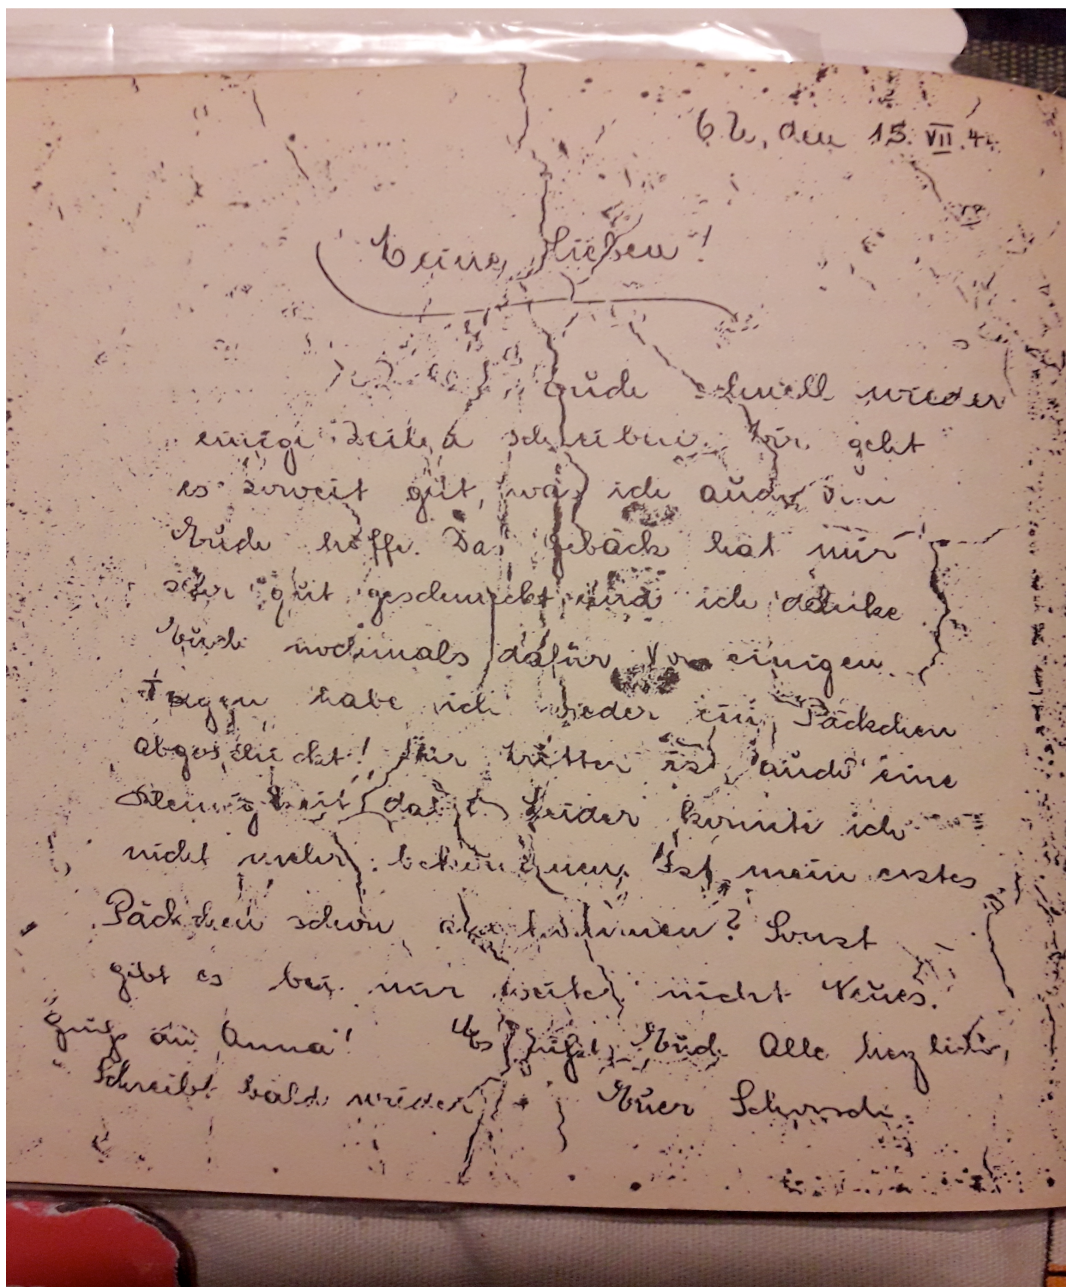 den 15. VII. 4
Meine Lieben!
Euch schnell wieder
einige Zeilen schreiben. Mir geht
es soweit gut, was ich auch von
Euch hoffe. Das Gebäck hat mir
sehr gut geschmeckt und ich danke
Euch nochmals dafür. Vor einigen
Tagen habe ich wieder ein Päckchen
abgeschickt! Für Mutter ist auch eine
Kleinigkeit dabei. Leider konnte ich
nicht mehr bekommen. Ist mein erstes
Päckchen schon angekommen? Sonst
gibt es bei mir weiter nicht Neues.
Gruß an Anna! Es grüßt Euch Alle herzlich,
Schreibt bald wieder! Euer Schorsch.